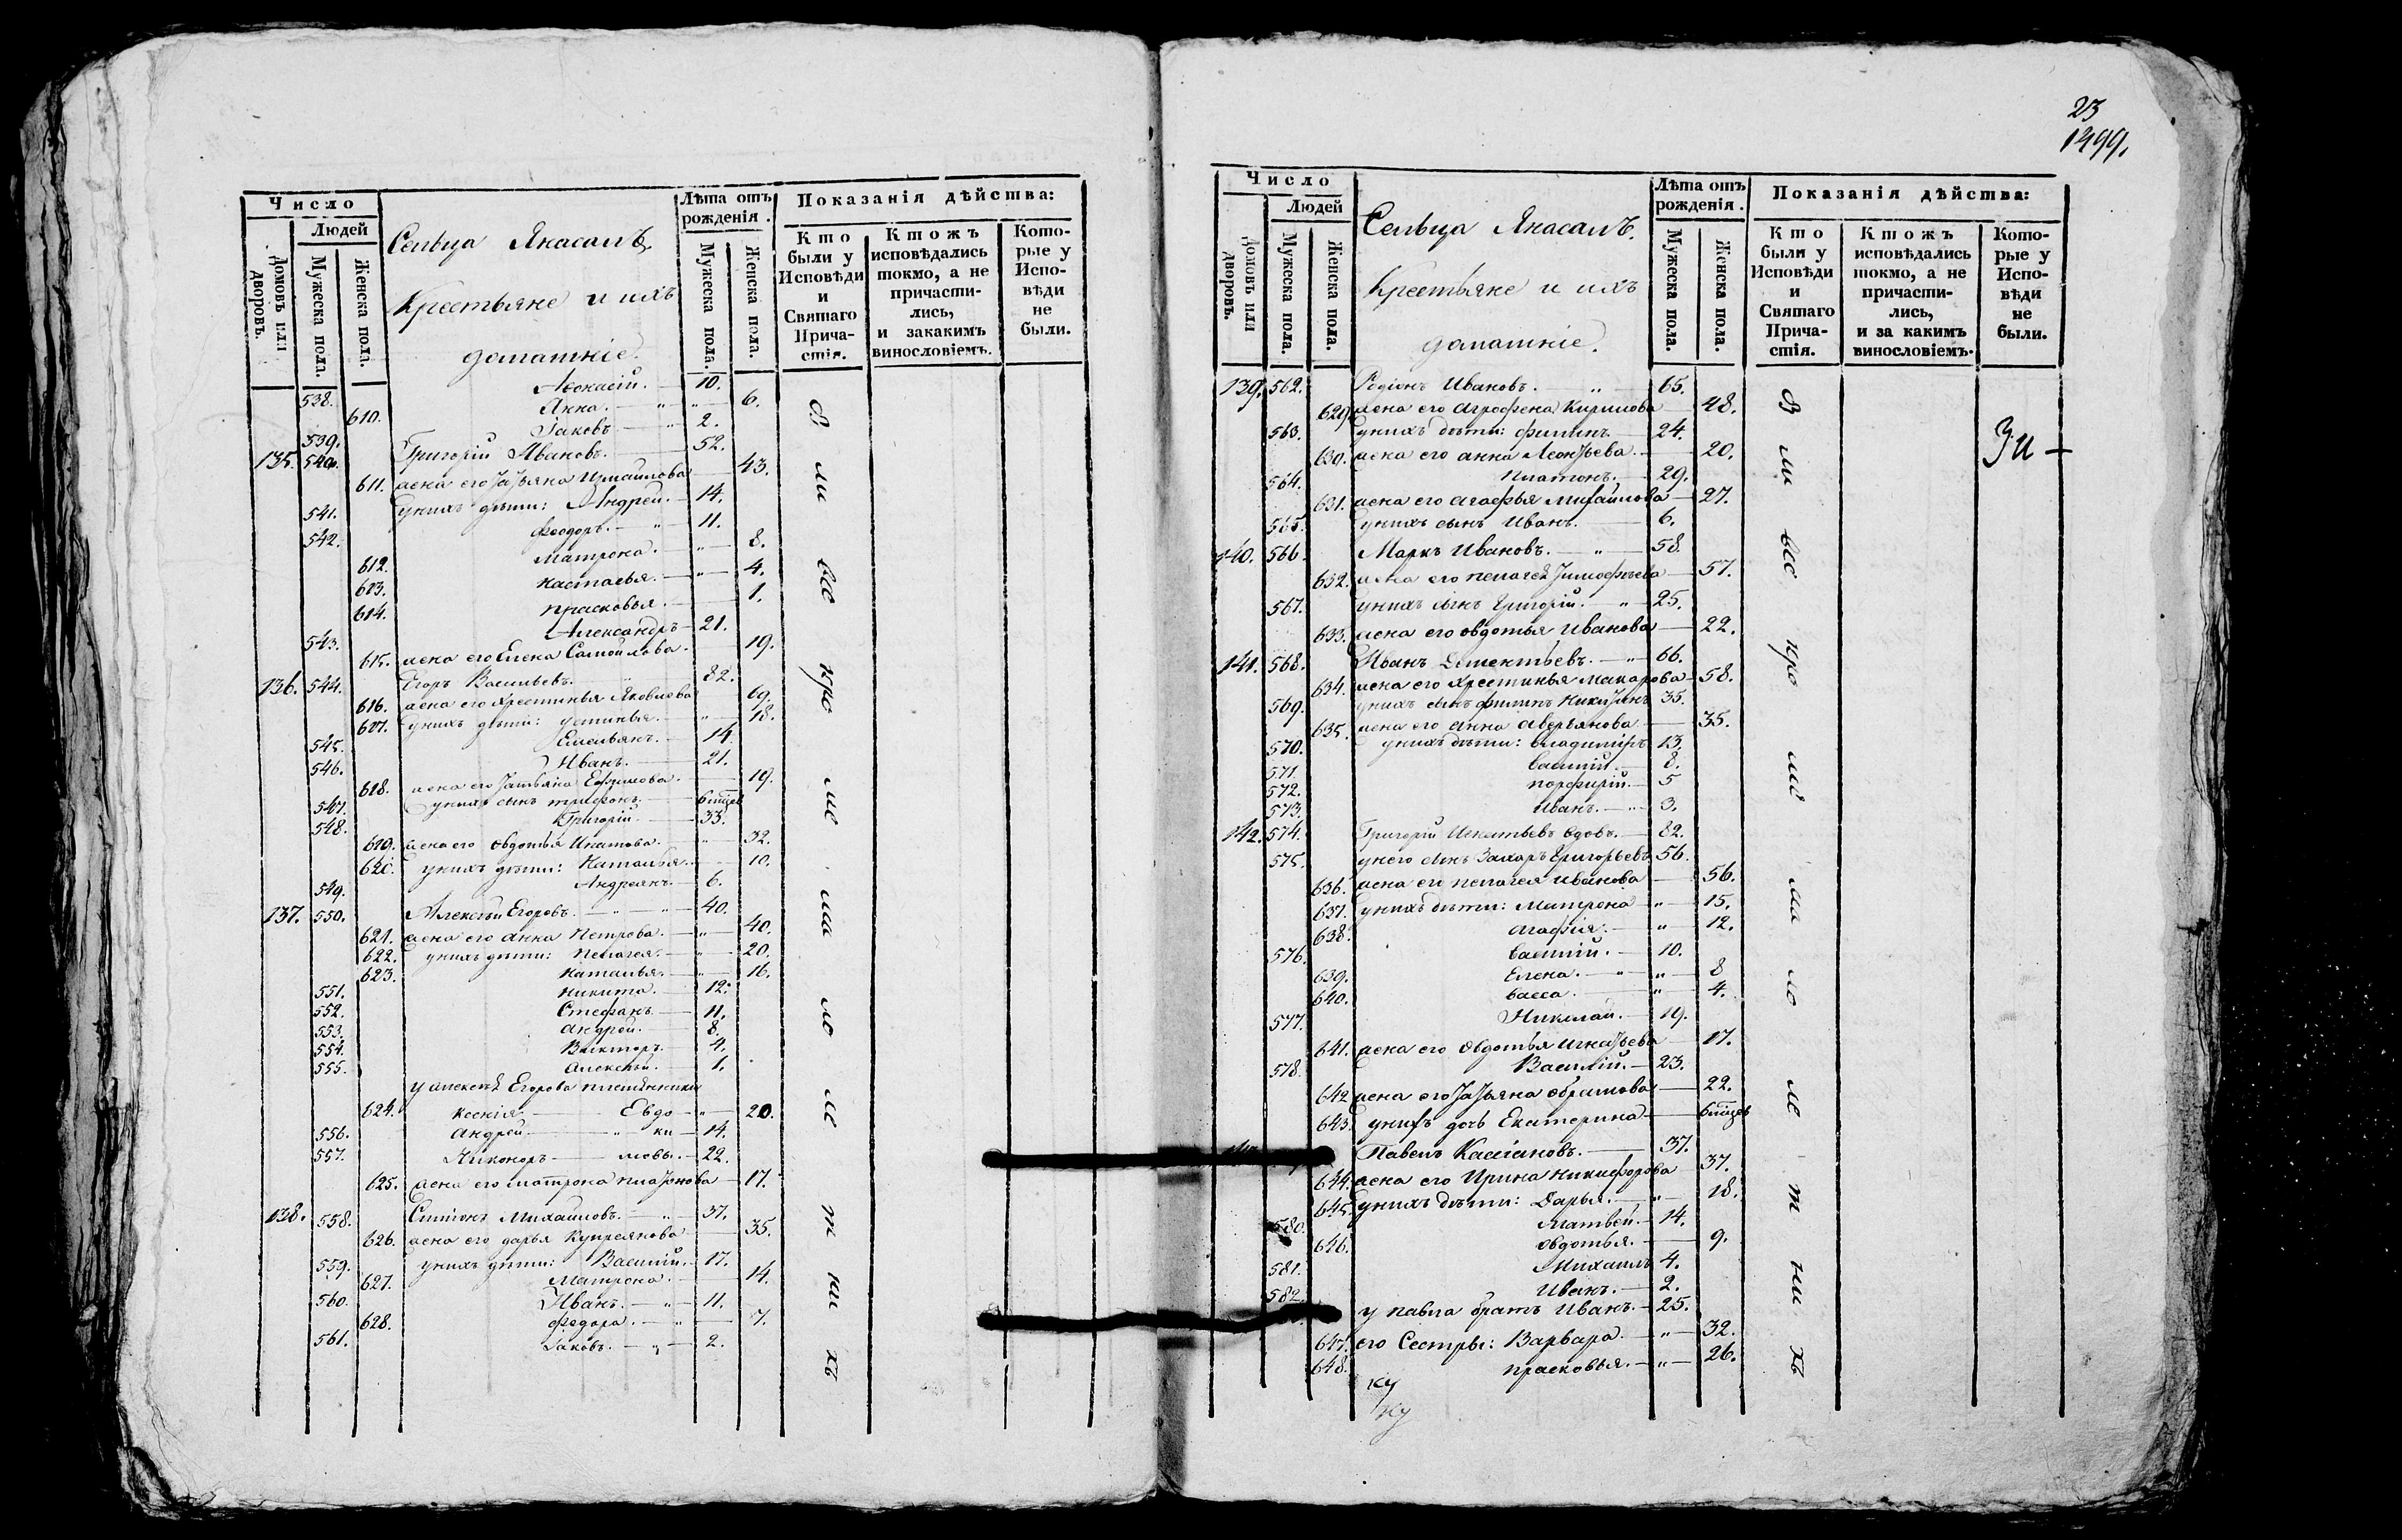 Число
Людей
Домовъ или дворовъ.
Мужеска пола.
Женска пола.
Сельца Якасалъ.
Крестьяне и ихъ
домашніе.
Лѣта отъ рожденія.
Мужеска пола.
Женска пола.
Показанія дѣйства:
Кто были у Исповѣди и Святаго Причастія.
Ктожъ исповѣдались токмо, а не причастились, и закакимъ винословіемъ.
Которые у Исповѣди не были.
538. Афонасій. 10.
610. Анна. 6.
539. Іаковъ 2.
135. 540. Григорій Ивановъ. 52.
611. жена его Татьяна Измаилова 43.
541. у нихъ дѣти: Андрей. 14.
542. Феодоръ. 11.
612. Матрона. 8.
613. Настасья. 4.
614. Прасковья. 1.
543. Александръ 21.
615. жена его Елена Самойлова. 19.
136. 544. Егоръ Васильевъ. 82.
616. жена его Хрестинья Яковлева 69.
617. у нихъ дѣти: Устинья. 18.
545. Емельянъ. 14.
546. Иванъ. 21.
618. жена его Татьяна Ефимова. 19.
547. у нихъ сынъ Трифонъ. 6 мцев
548. Григорій. 33.
619. жена его Овдотья Игнатова. 32.
620. у нихъ дѣти: Наталья. 10.
549. Андреянъ. 6.
137. 550. Алексѣй Егоровъ. 40.
621. жена его Анна Петрова. 40.
622. у нихъ дѣти: Пелагея. 20.
623. Наталья. 16.
551. Никита. 12.
552. Стефанъ. 11.
553. Андрей. 8.
554. Викторъ. 4.
555. Алексѣй. 1.
у Алексѣя Егорова племянники
624. Ксенія Евдо 20.
556. Андрей ки 14.
557. Никоноръ мовы. 22.
625. жена его Матрона Платонова 17.
138. 558. Симіонъ Михаиловъ. 37.
626. жена его Дарья Купреянова 35.
559. у нихъ дѣти: Василій. 17.
627. Матрона. 14.
560. Иванъ. 11.
628. Федора. 7.
561. Іаковъ. 2.
в
ы
все
про
ше
ма
ло
ле
т
ни
хъ
23
1499.
Число
Людей
Домовъ или дворовъ.
Мужеска пола.
Женска пола.
Сельца Якасалъ.
Крестьяне и ихъ
домашніе.
Лѣта отъ рожденія.
Мужеска пола.
Женска пола.
Показанія дѣйства:
Кто были у Исповѣди и Святаго Причастія.
Ктожъ исповѣдались токмо, а не причастились, и за какимъ винословіемъ.
Которые у Исповѣди не были.
139. 562. Родіонъ Ивановъ. 65.
629. жена его Агрофена Кирилова 48.
563. у нихъ дѣти: Филипъ. 24.
630. жена его Анна Леонтьева. 20.
564. Платонъ. 29.
631. жена его Агафья Михайлова 27.
565. у нихъ сынъ Иванъ. 6.
140. 566. Маркъ Ивановъ. 58.
632. жена его Пелагея Тимофѣева 57.
567. у нихъ сынъ Григорій. 25.
633. жена его Овдотья Иванова 22.
141. 568. Иванъ Дементьевъ. 66.
634. жена его Хрестинья Макарова 58.
569. у нихъ сынъ Филипъ 35.
635. жена его Анна Аверьянова 35.
570. у нихъ дѣти: Владимиръ 13.
571. Василій. 8.
572. Порфирій. 5
573. Иванъ. 3.
142. 574. Григорій Игнатьевъ вдовъ. 82.
575. у него сынъ Захаръ Григорьевъ 56.
636. жена его Пелагея Иванова 56.
637. у нихъ дѣти: Матрона 15.
638. Агафія. 12.
576. Василій. 10.
639. Елена. 8
640. Васса. 4.
577. Николай. 19.
641. жена его Овдотья Игнатьева 17.
578. Василій. 23.
642. жена его Татьяна Обрамова 22.
643. у нихъ дочь Екатерина 6 мцев
Павелъ Касіановъ. 37.
644. жена его Ирина Никифорова 37.
645. у нихъ дѣти: Дарья. 18.
580. Матвей. 14.
646. Овдотья. 9.
581. Михаилъ 4.
582. Иванъ. 2.
у Павла братъ Иванъ. 25.
647. его Сестры: Варвара. 32.
648. Прасковья. 26.
ку
ку
в
ы
все
про
ше
ма
ло
ле
т
ни
хъ